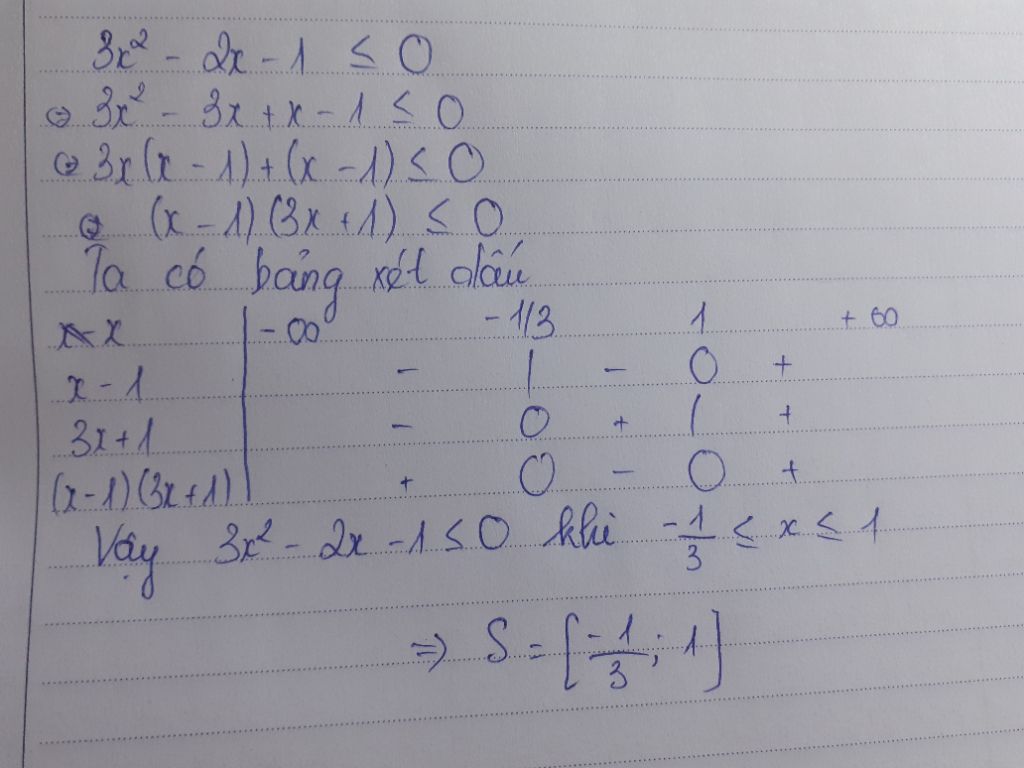 3x² - 2x - 1 ≤ 0
⇔ 3x² - 3x + x - 1 ≤ 0
⇔ 3x(x - 1) + (x - 1) ≤ 0
⇔ (x - 1)(3x + 1) ≤ 0
Ta có bảng xét dấu
x | -∞ -1/3 1 +∞
x - 1 | - | - 0 +
3x + 1 | - 0 + | +
(x-1)(3x+1) | + 0 - 0 +
Vậy 3x² - 2x - 1 ≤ 0 khi -1/3 ≤ x ≤ 1
⇒ S = [-1/3; 1]